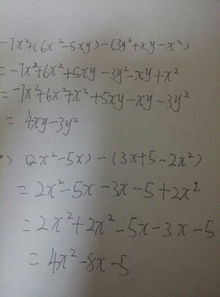 -7x²+(6x²-5xy)-(3y²+xy-x²)
=-7x²+6x²+5xy-3y²-xy+x²
=-7x²+6x²+x²+5xy-xy-3y²
=4xy-3y²
) (2x²-5x)-(3x+5-2x²)
=2x²-5x-3x-5+2x²
=2x²+2x²-5x-3x-5
=4x²-8x-5